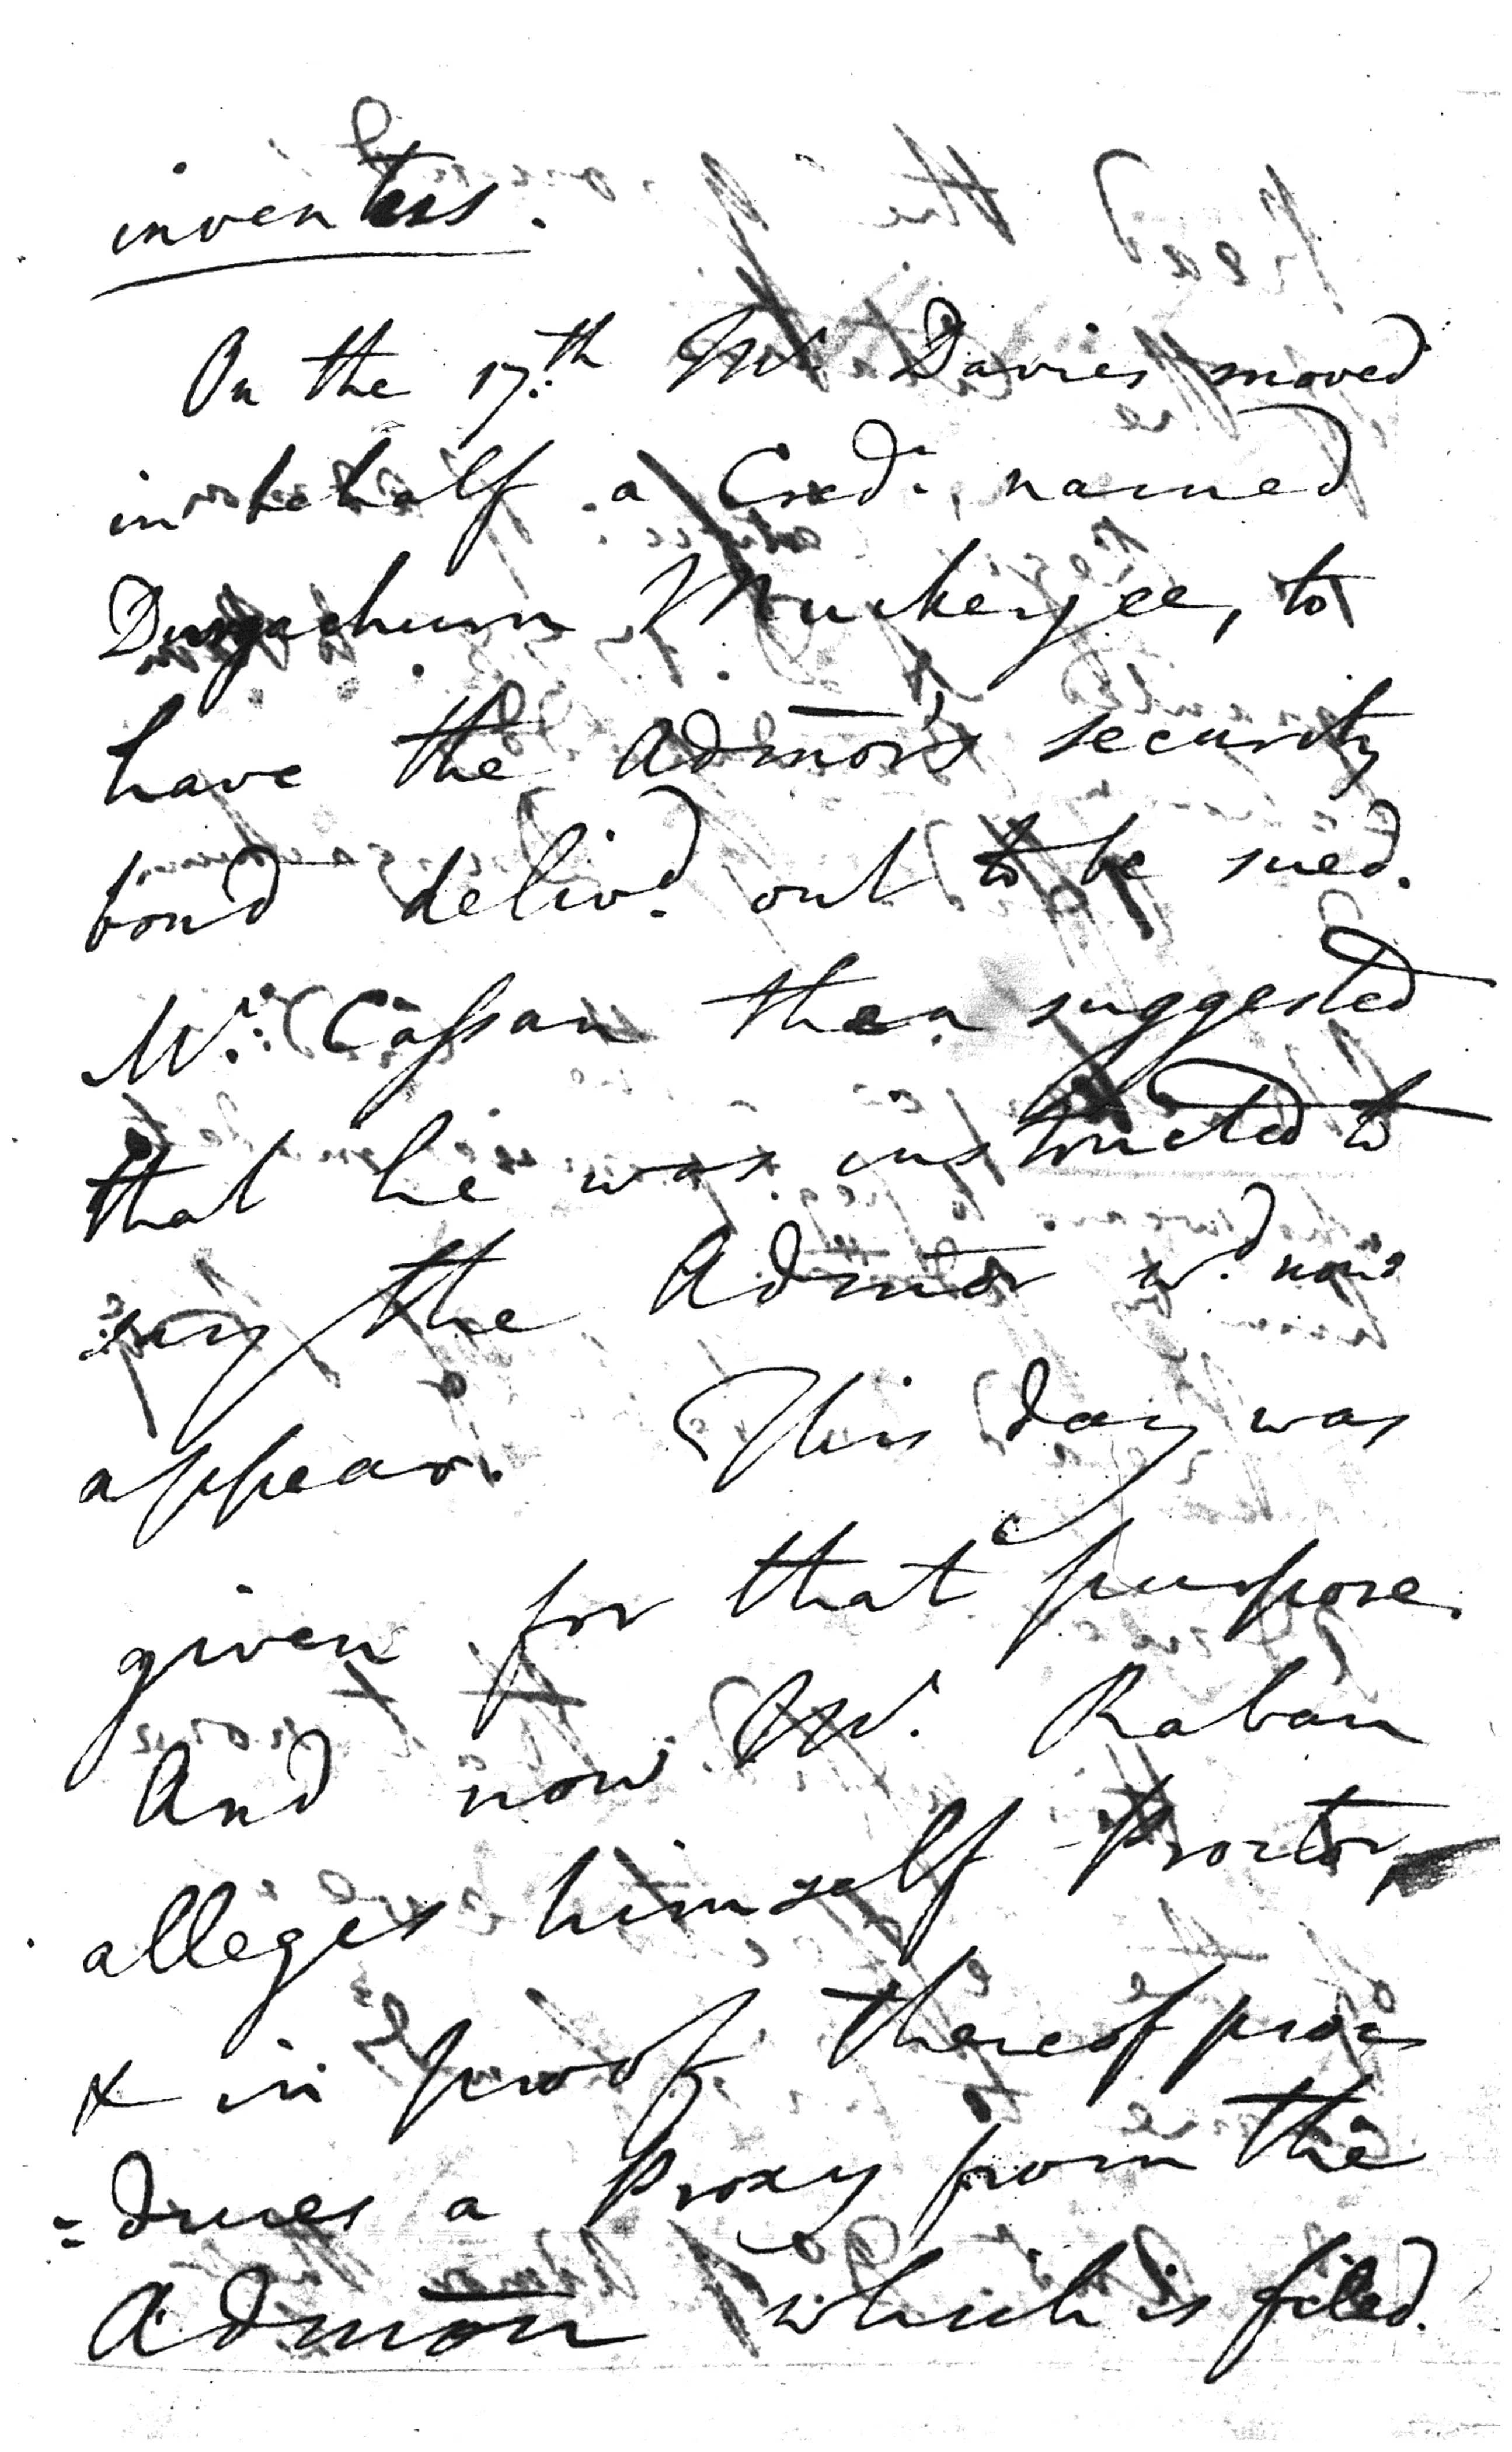 On the 17th. Mr. Davies moved
in behalf a Cred:, named
Durgachurn Muckerjee, to
have the Admor's security
bond delivd. out to be sued.
Mr. Cassan then suggested
that he was instructed to
say the Admor wd. now
appear. This day was
given for that purpose.
And now Mr. Raban
alleges himself Proctor,
& in proof thereof pro
=duces a Proxy from the
Admor which is filed.